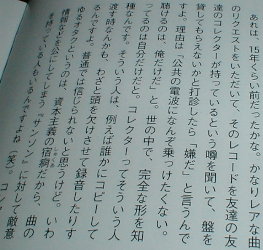 あれは、15年くらい前だったかな。かなりレアな曲
のリクエストをいただいて、そのレコードを友達の友
達のコレクターが持っているという噂を聞いて、盤を
貸してもらえないかと打診したら「嫌だ」と言うんで
すよ。理由は「公共の電波になんぞ乗っけたくない。
聴くのは、俺だけだ」と。世の中で、完全な形を知
ってるのは自分だけだと。コレクターってそういう人
種なんです。そういう人は、例えば誰かにコピーして
渡す時なんかも、わざと頭を欠けさせて録音したりす
るんですよ。普通では信じられないと思うけど。いわ
ゆるオタクというのは、資本主義の宿痾だから、曲の
情報などを公にしてしまう『サンソン』に対して敵意
を持っている人もいるんですよね（笑）。コレ